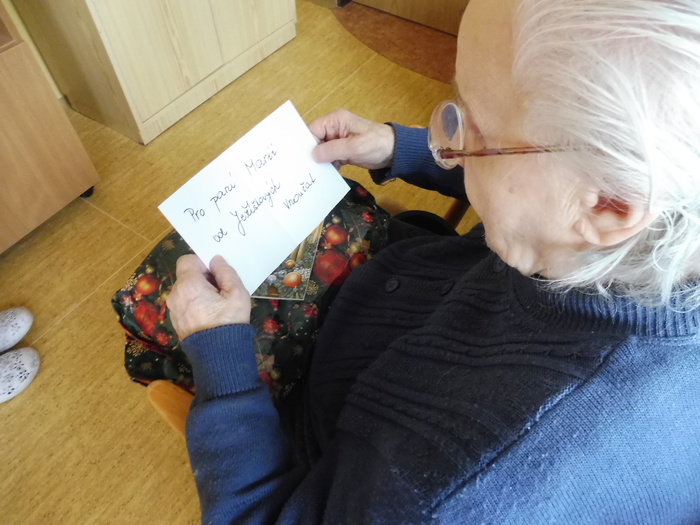 Pro paní Marii
od Ježíškových
vnoučat